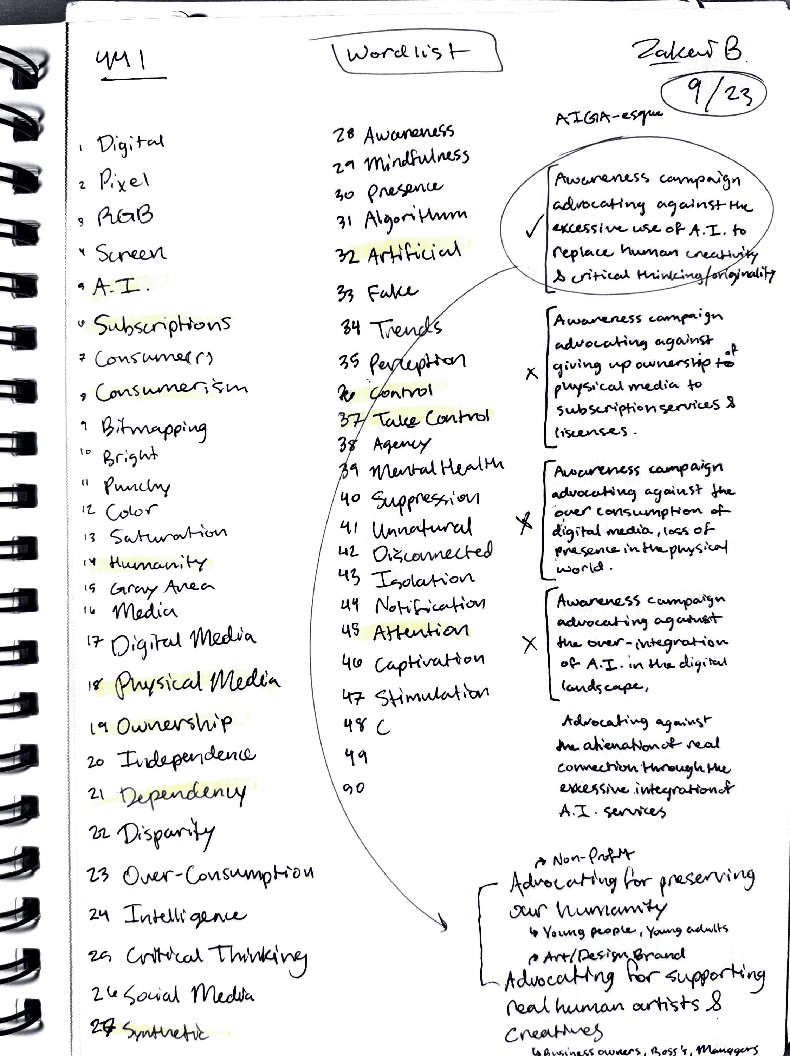 441
Wordlist
Zakew B.
9/23
1 Digital
2 Pixel
3 RGB
4 Screen
5 A.I.
6 Subscriptions
7 Consumers
8 Consumerism
9 Bitmapping
10 Bright
11 Punchy
12 Color
13 Saturation
14 Humanity
15 Gray Area
16 Media
17 Digital Media
18 Physical Media
19 Ownership
20 Independence
21 Dependency
22 Disparity
23 Over-Consumption
24 Intelligence
25 Critical Thinking
26 Social Media
27 Synthetic
28 Awareness
29 Mindfulness
30 Presence
31 Algorithum
32 Artificial
33 Fake
34 Trends
35 Perception
36 Control
37 Take Control
38 Agency
39 Mental Health
40 Suppression
41 Unnatural
42 Disconnected
43 Isolation
44 Notification
45 Attention
46 Captivation
47 Stimulation
48 C
49
50
AIGA-esque
Awareness campaign
advocating against the
excessive use of A.I. to
replace human creativity
& critical thinking/originality
Awareness campaign
advocating against
giving up ownership to of
physical media to
subscription services &
liscenses.
Awareness campaign
advocating against the
over consumption of
digital media, loss of
presence in the physical
world.
Awareness campaign
advocating against
the over-integration
of A.I. in the digital
landscape,
Advocating against
the alienation of real
connection through the
excessive integration of
A.I. services
Non-Profit
Advocating for preserving
our humanity
Young people, Young adults
Art/Design Brand
Advocating for supporting
real human artists &
creatives
Business owners, Boss's, Managers